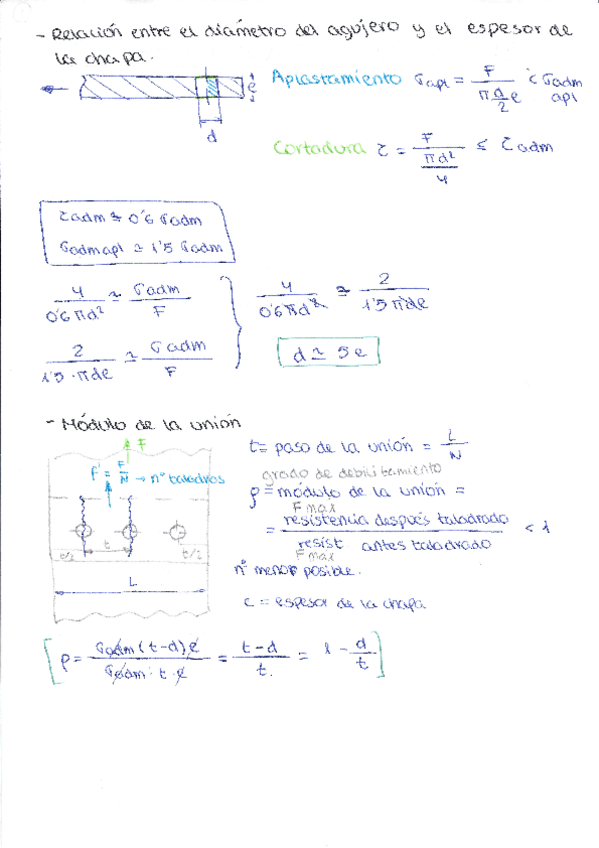 - Relación entre el diámetro del agujero y el espesor de
la chapa.
Aplastamiento σapl = F / (π d/2 e) < σadm apl
e
d
Cortadura τ = F / (πd²/4) ≤ τadm
τadm ≃ 0'6 σadm
σadmapl ≃ 1'5 σadm
4 / (0'6πd²) ≃ σadm / F
4 / (0'6πd²) ≃ 2 / (1'5πde)
2 / (1'5·πde) ≃ σadm / F
d ≃ 5e
- Módulo de la unión
F
t = paso de la unión = L / N
f' = F/N → nº taladros
grado de debilitamiento
ρ = módulo de la unión =
F max
= resistencia después taladrado / resist antes taladrado < 1
F max
t/2 t t/2
nº menor posible.
L
e = espesor de la chapa
ρ = σadm (t-d) e / σadm · t · e = t-d / t = 1 - d/t